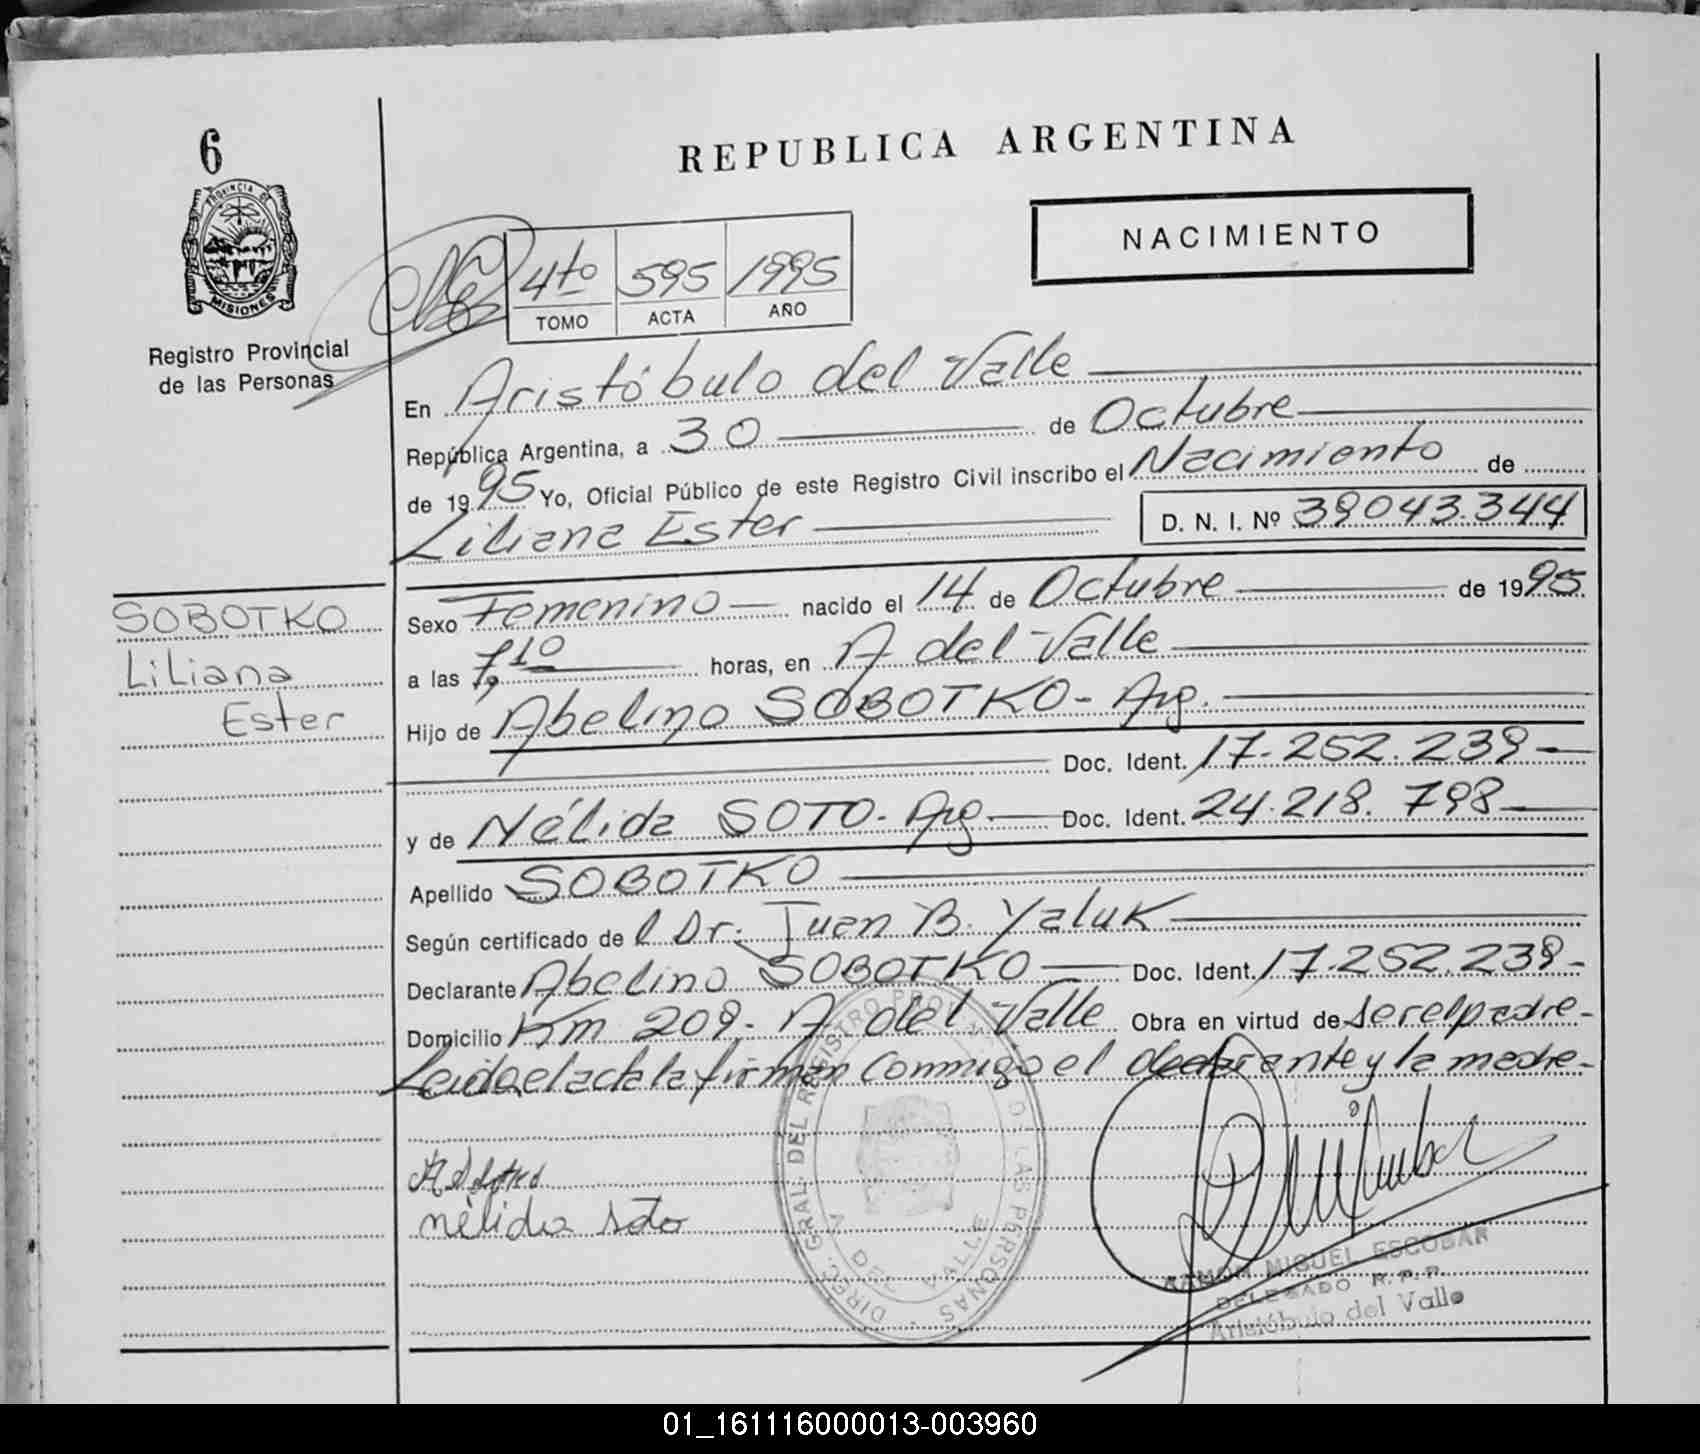 6
REPUBLICA ARGENTINA
PROVINCIA DE
MISIONES
Registro Provincial
de las Personas
NACIMIENTO
4to 595 1995
TOMO ACTA AÑO
En Aristóbulo del Valle
República Argentina, a 30 de Octubre
de 1995 Yo, Oficial Público de este Registro Civil inscribo el Nacimiento de
Liliana Ester D. N. I. Nº 39043.344
SOBOTKO
Liliana
Ester
Sexo Femenino nacido el 14 de Octubre de 1995
a las 7,10 horas, en A del Valle
Hijo de Abelino SOBOTKO - Arg.
Doc. Ident. 17.252.239
y de Nélida SOTO - Arg. Doc. Ident. 24.218.798
Apellido SOBOTKO
Según certificado de l Dr. Juan B. Yaluk
Declarante Abelino SOBOTKO Doc. Ident. 17.252.239-
Domicilio Km 209. A del Valle Obra en virtud de ser el padre-
Leida el acta la firman conmigo el declarante y la madre-
nélida soto
DIREC. GRAL. DEL REGISTRO PROV. DE LAS PERSONAS
A DEL VALLE
RAMON MIGUEL ESCOBAR
DELEGADO R.P.P.
Aristóbulo del Valle
01_161116000013-003960